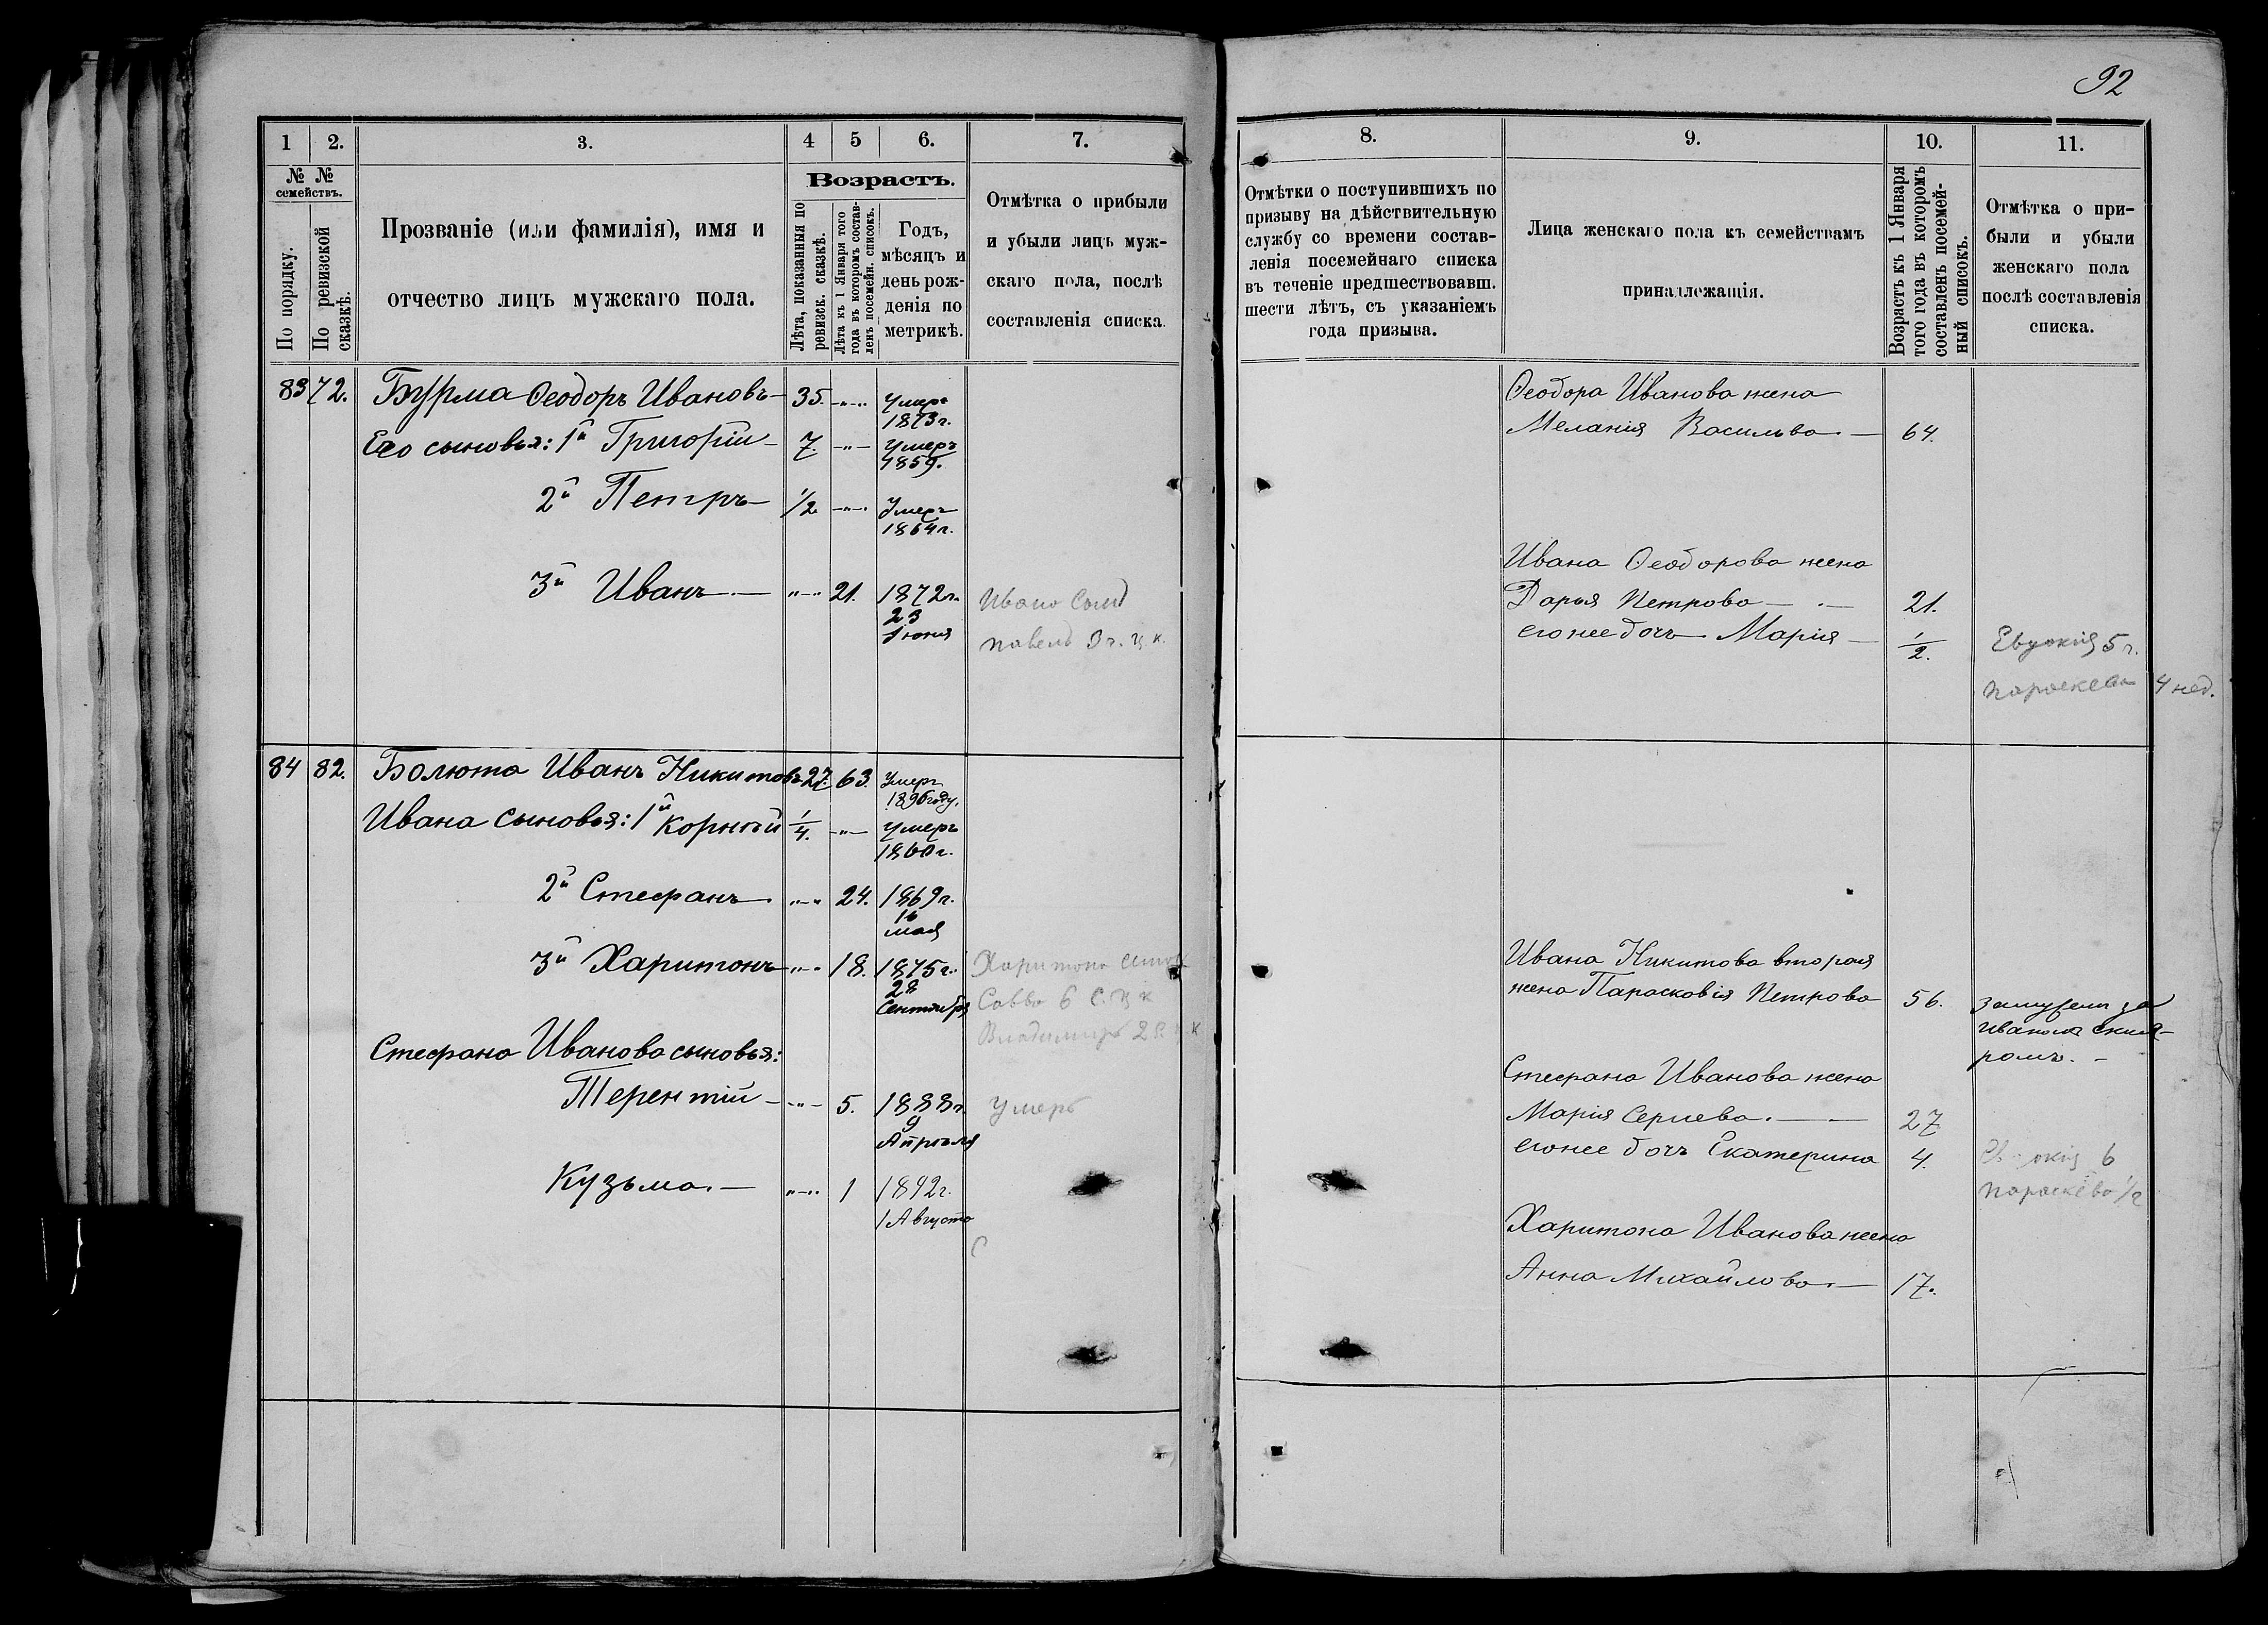 92
1
2.
3.
4
5
6.
7.
№ №
семействъ.
По порядку.
По ревизской
сказкѣ.
Прозваніе (или фамилія), имя и
отчество лицъ мужскаго пола.
Возрастъ.
Лѣта, показанныя по
ревизск. сказкѣ.
Лѣта къ 1 Января того
года въ которомъ состав-
ленъ посемейн. списокъ.
Годъ,
мѣсяцъ и
день рож-
денія по
метрикѣ.
Отмѣтка о прибыли
и убыли лицъ муж-
скаго пола, послѣ
составленія списка.
83 72. Бурма Ѳеодоръ Ивановъ 35. Умеръ
1873г.
Его сыновья: 1й Григорій 7. Умеръ
1859.
2й Петръ 1/2 Умеръ
1864г.
3й Иванъ 21. 1872г.
23
Іюня
Ивана сынъ
Павелъ 3 г.
84 82. Болюта Иванъ Никитовъ 27. 63. Умеръ
1896году.
Ивана сыновья: 1й Корній 1/4. Умеръ
1860г.
2й Стефанъ 24. 1869г.
16
мая
3й Харитонъ 18. 1875г. Харитона
28
Сентября Савва 6
Владимиръ 2
Стефана Иванова сыновья:
Терентій 5. 1888г. Умеръ
9
Апрѣля
Кузьма 1 1892г.
1 Августа
8.
9.
10.
11.
Отмѣтки о поступившихъ по
призыву на дѣйствительную
службу со времени состав-
ленія посемейнаго списка
въ теченіе предшествовавш.
шести лѣтъ, съ указаніемъ
года призыва.
Лица женскаго пола къ семействамъ
принадлежащія.
Возрастъ къ 1 Января
того года въ которомъ
составленъ посемей-
ный списокъ.
Отмѣтка о при-
были и убыли
женскаго пола
послѣ составленія
списка.
Ѳеодора Иванова жена
Меланія Васильва 64.
Ивана Ѳеодорова жена
Дарья Петрова 21.
его же дочь Марія 1/2. Евдокія 5 г.
Параскева 4 нед.
Ивана Никитова вторая
жена Парасковія Петрова 56. замужемъ за
Иваномъ
Стефана Иванова жена
Марія Сергиева 27
его же дочь Екатерина 4. Евдокія 6
Параскева 1/2
Харитона Иванова жена
Анна Михайлова 17.